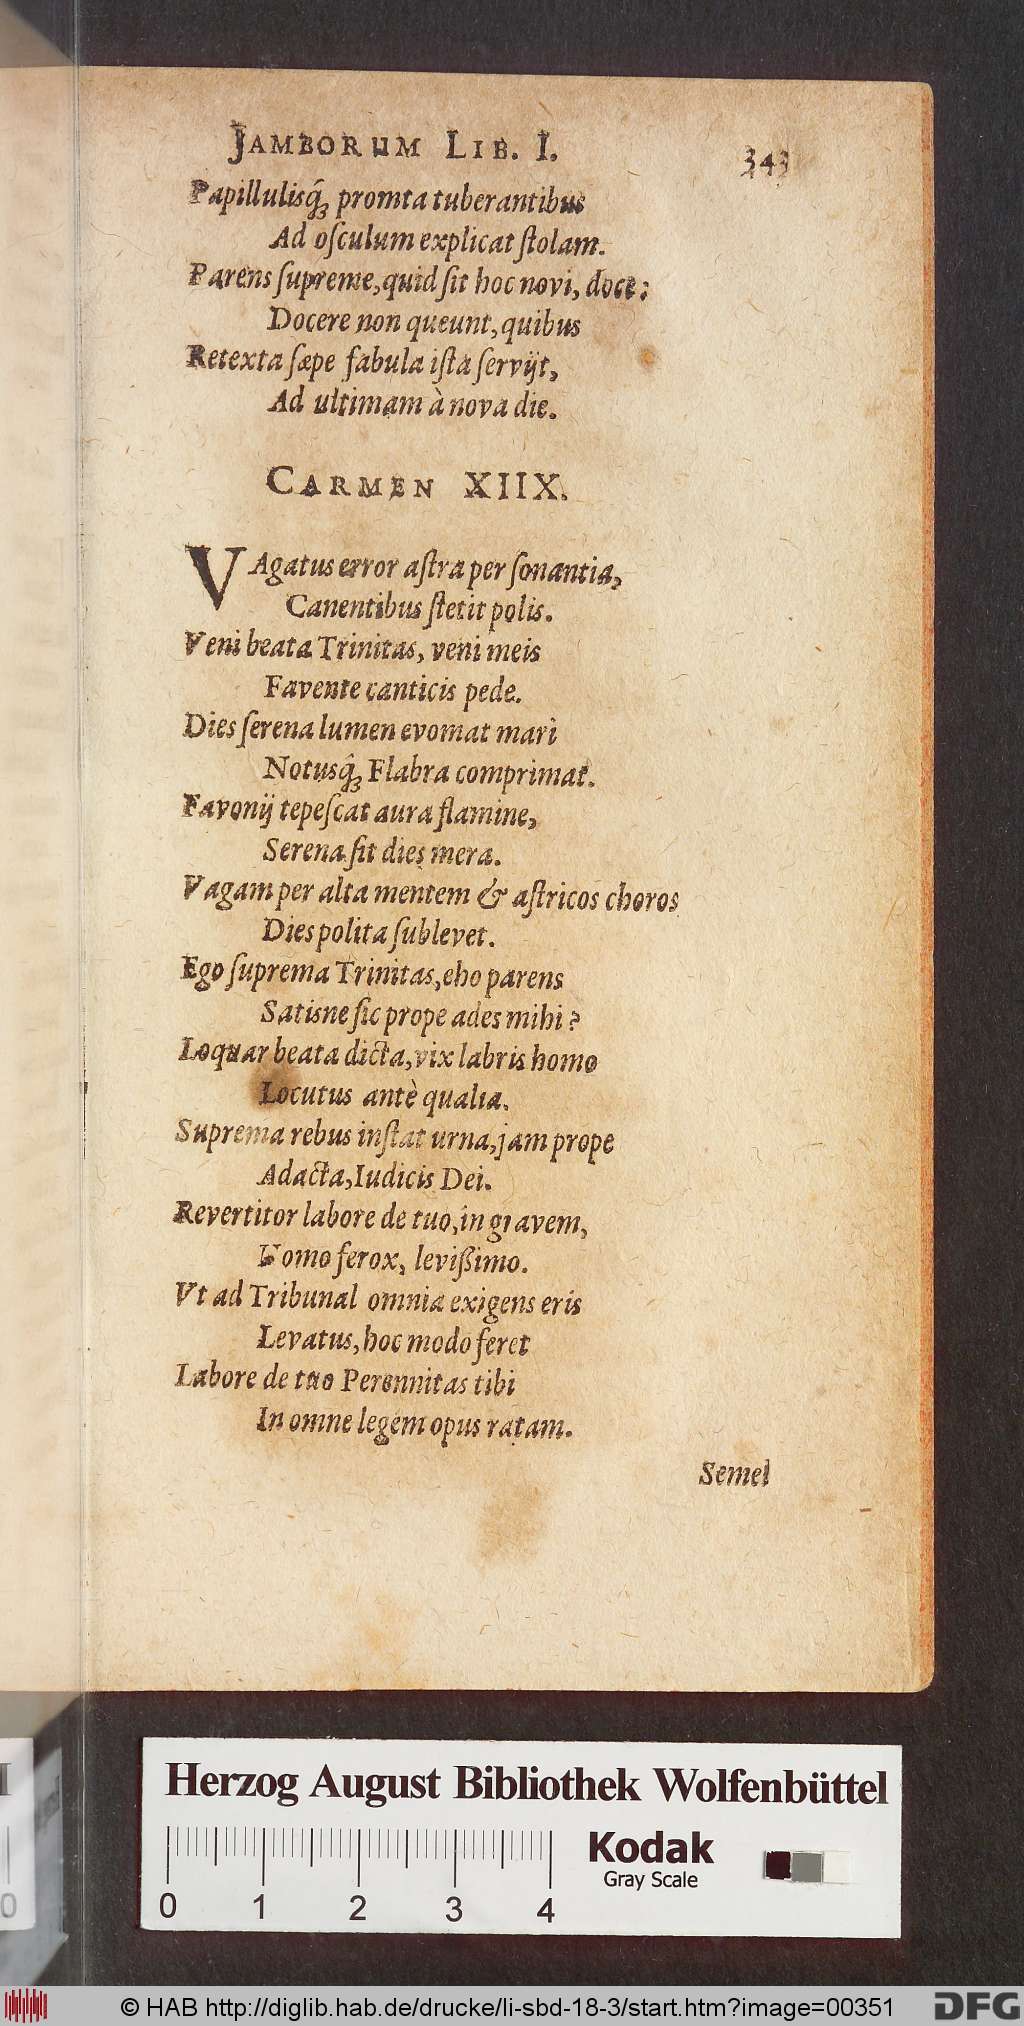 JAMBORUM LIB. I.
343
Papillulisq́; promta tuberantibus
Ad oſculum explicat ſtolam.
Parens ſupreme, quid ſit hoc novi, doce:
Docere non queunt, quibus
Retexta ſæpe fabula iſta ſervijt,
Ad ultimam à nova die.
CARMEN XIIX.
VAgatus error aſtra per ſonantia,
Canentibus ſtetit polis.
Veni beata Trinitas, veni meis
Favente canticis pede.
Dies ſerena lumen evomat mari
Notusq́; Flabra comprimat.
Favonij tepeſcat aura flamine,
Serena ſit dies mera.
Vagam per alta mentem & aſtricos choros
Dies polita ſublevet.
Ego ſuprema Trinitas, eho parens
Satisne ſic prope ades mihi?
Loquar beata dicta, vix labris homo
Locutus antè qualia.
Suprema rebus inſtat urna, jam prope
Adacta, Iudicis Dei.
Revertitor labore de tuo, in gravem,
Homo ferox, levißimo.
Vt ad Tribunal omnia exigens eris
Levatus, hoc modo feret
Labore de tuo Perennitas tibi
In omne legem opus ratam.
Semel
Herzog August Bibliothek Wolfenbüttel
Kodak
Gray Scale
0 1 2 3 4
© HAB http://diglib.hab.de/drucke/li-sbd-18-3/start.htm?image=00351
DFG